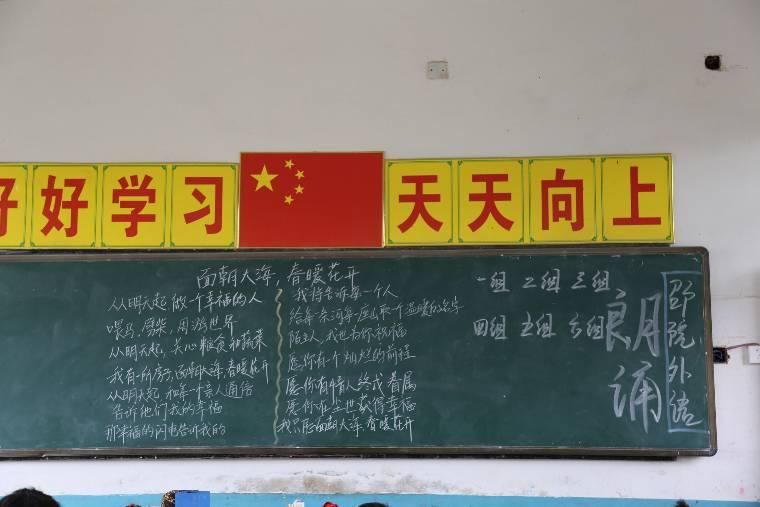 好好学习 天天向上
面朝大海，春暖花开
从明天起 做一个幸福的人
喂马，劈柴，周游世界
从明天起，关心粮食和蔬菜
我有一所房子，面朝大海，春暖花开
从明天起 和每个亲人通信
告诉他们我的幸福
那幸福的闪电告诉我的
我将告诉每一个人
给每一条河每一座山取一个温暖的名字
陌生人，我也为你祝福
愿你有一个灿烂的前程
愿你有情人终成眷属
愿你在尘世获得幸福
我只愿面朝大海，春暖花开
一组 二组 三组
四组 五组 六组
朗诵
邵院外语